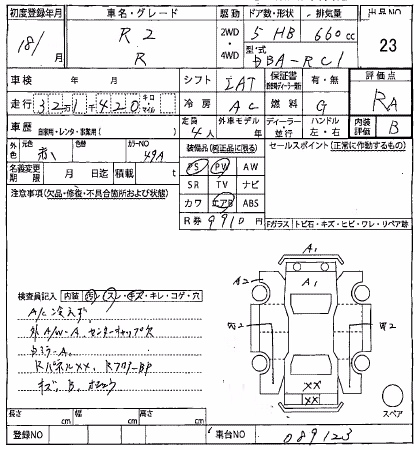 初度登録年月 車名・グレード 駆動 ドア数・形状 排気量 出品NO
18/ 月 R2 R 2WD・4WD 5 HB 660cc 23
型式 DBA-RC1
車検 年 月 シフト IAT 保証書 有・無 評価点
走行 キロ マイル 冷房 AC 燃料 G RA
車歴 自家用・レンタ・事業用( ) 定員 4人 外車モデル 年 ディーラー・並行 ハンドル 左・右 内装評価 B
外色 元色 赤 色替 カラーNO 49A 装備品(純正品に限る) セールスポイント(正常に作動するもの)
PS PW AW
名義変更期限 月 日迄 積載 t SR TV ナビ
注意事項(欠品・修復・不具合箇所および状態) カワ エアB ABS
R券 9910円 Fガラス トビ石・キズ・ヒビ・ワレ・リペア跡
A1
A2 A1
検査員記入 内装 汚レ・スレ・キズ・キレ・コゲ・穴
A/C冷えず
外A/W-A センターキャップ欠
XX
XX
長さ cm 幅 cm 高さ cm スペア
登録NO 車台NO 089123